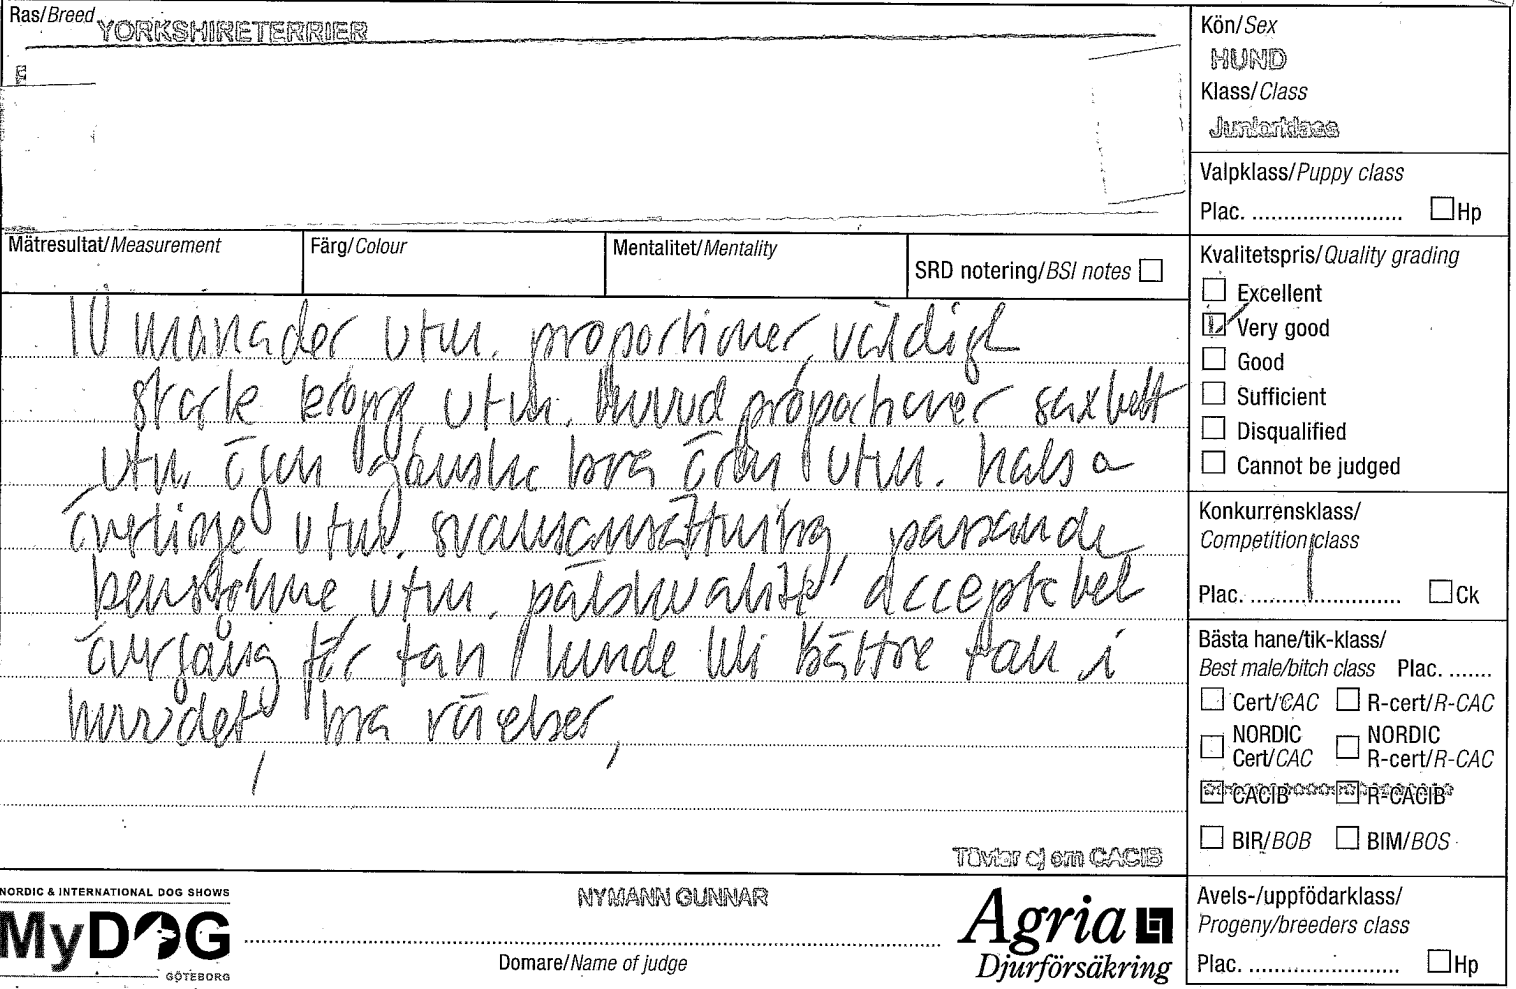 Ras/Breed YORKSHIRETERRIER
Kön/Sex
HUND
Klass/Class
Juniorklass
Valpklass/Puppy class
Plac. ........................ Hp
Mätresultat/Measurement Färg/Colour Mentalitet/Mentality SRD notering/BSI notes
Kvalitetspris/Quality grading
Excellent
Very good
Good
Sufficient
Disqualified
Cannot be judged
10 månader utm. proportioner, väldigt
stark kropp, utm. huvud proportioner saxbett
utm. ögon ganska bra öron utm. hals o
överlinje utm. svansansättning, passande
benstomme utm. pälskvalité acceptabel
övergång för tan kunde bli bättre tan i
huvudet, bra rörelser,
Konkurrensklass/
Competition class
Plac. ........................ Ck
Bästa hane/tik-klass/
Best male/bitch class Plac. .......
Cert/CAC R-cert/R-CAC
NORDIC Cert/CAC NORDIC R-cert/R-CAC
CACIB R-CACIB
BIR/BOB BIM/BOS
Tävlar ej om CACIB
NORDIC & INTERNATIONAL DOG SHOWS
MyDOG
GÖTEBORG
NYMANN GUNNAR
Domare/Name of judge
Agria
Djurförsäkring
Avels-/uppfödarklass/
Progeny/breeders class
Plac. ........................ Hp